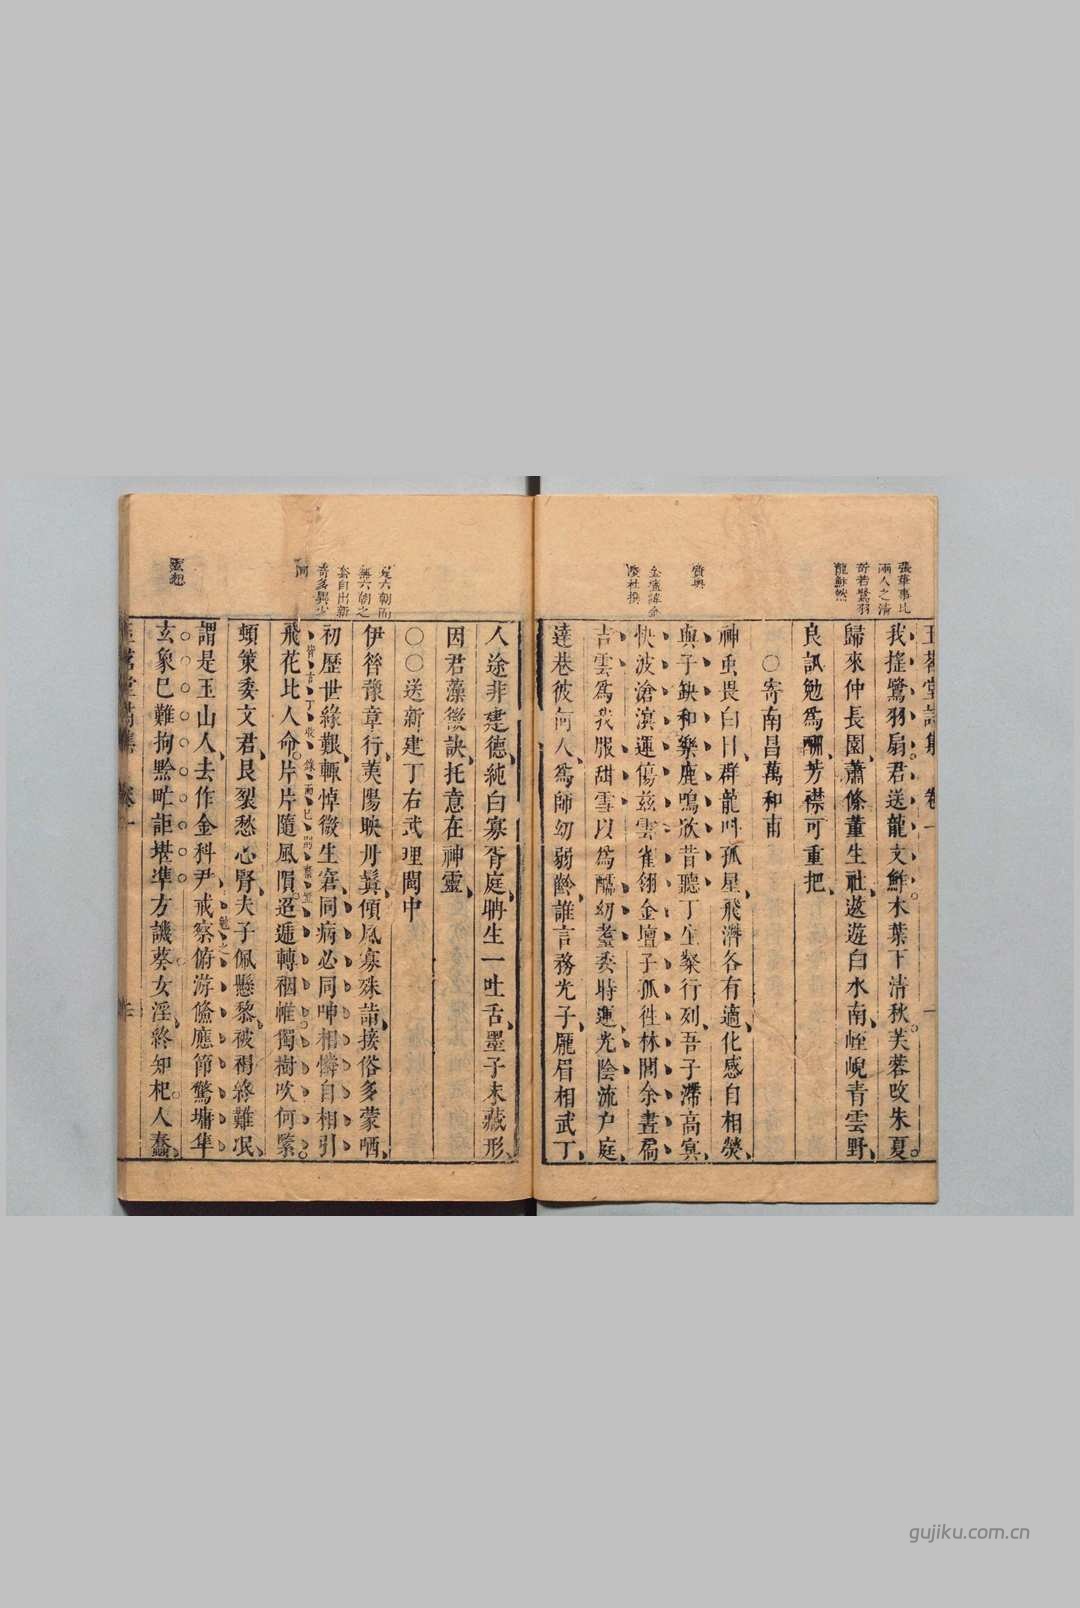 張華事比
兩人之清
奇若鷺羽
龍鮓然
玉茗堂詩集 卷一
我搖鷺羽扇君送龍文鮓木葉下清秋芙蓉改朱夏
歸來仲長園蕭條董生社遨遊白水南睥睨青雲野
良訊勉爲酬芳襟可重把
○寄南昌萬和甫
神虫畏白日群龍叫孤星飛潛各有適化感自相熒
與子鈌和樂鹿鳴欣昔聽丁生粲行列吾子滯高冥
快波滄溟運傷茲雲雀翎金壇子孤徃林閣余晝扃
吉雲爲我服甜雪以爲醹幼耋委時運光陰流户庭
達巷彼何人爲師幼弱齡誰言務光子厖眉相武丁
人途非建德純白寡胥庭聃生一吐舌墨子未藏形
因君藻微訣托意在神靈
見六朝而
無六朝之
套自出新
奇多異少
同
○○送新建丁右武理閩中
伊昝豫章行美陽映丹霬傾風寡殊詣接俗多蒙哂
初歷世緣艱輒悼微生窘同病必同呻相憐自相引
飛花比人命片片隨風隕迢遞轉裀帷獨樹吹何緊
頰策委文君艮裂愁心腎夫子佩懸黎被褐終難泯
謂是玉山人去作金科尹戒察俯游儵應節驚墉隼
玄象巳難拘黔甿詎堪準方譏葵女淫終知杞人蠢
玄想
玉茗堂詩集 卷一